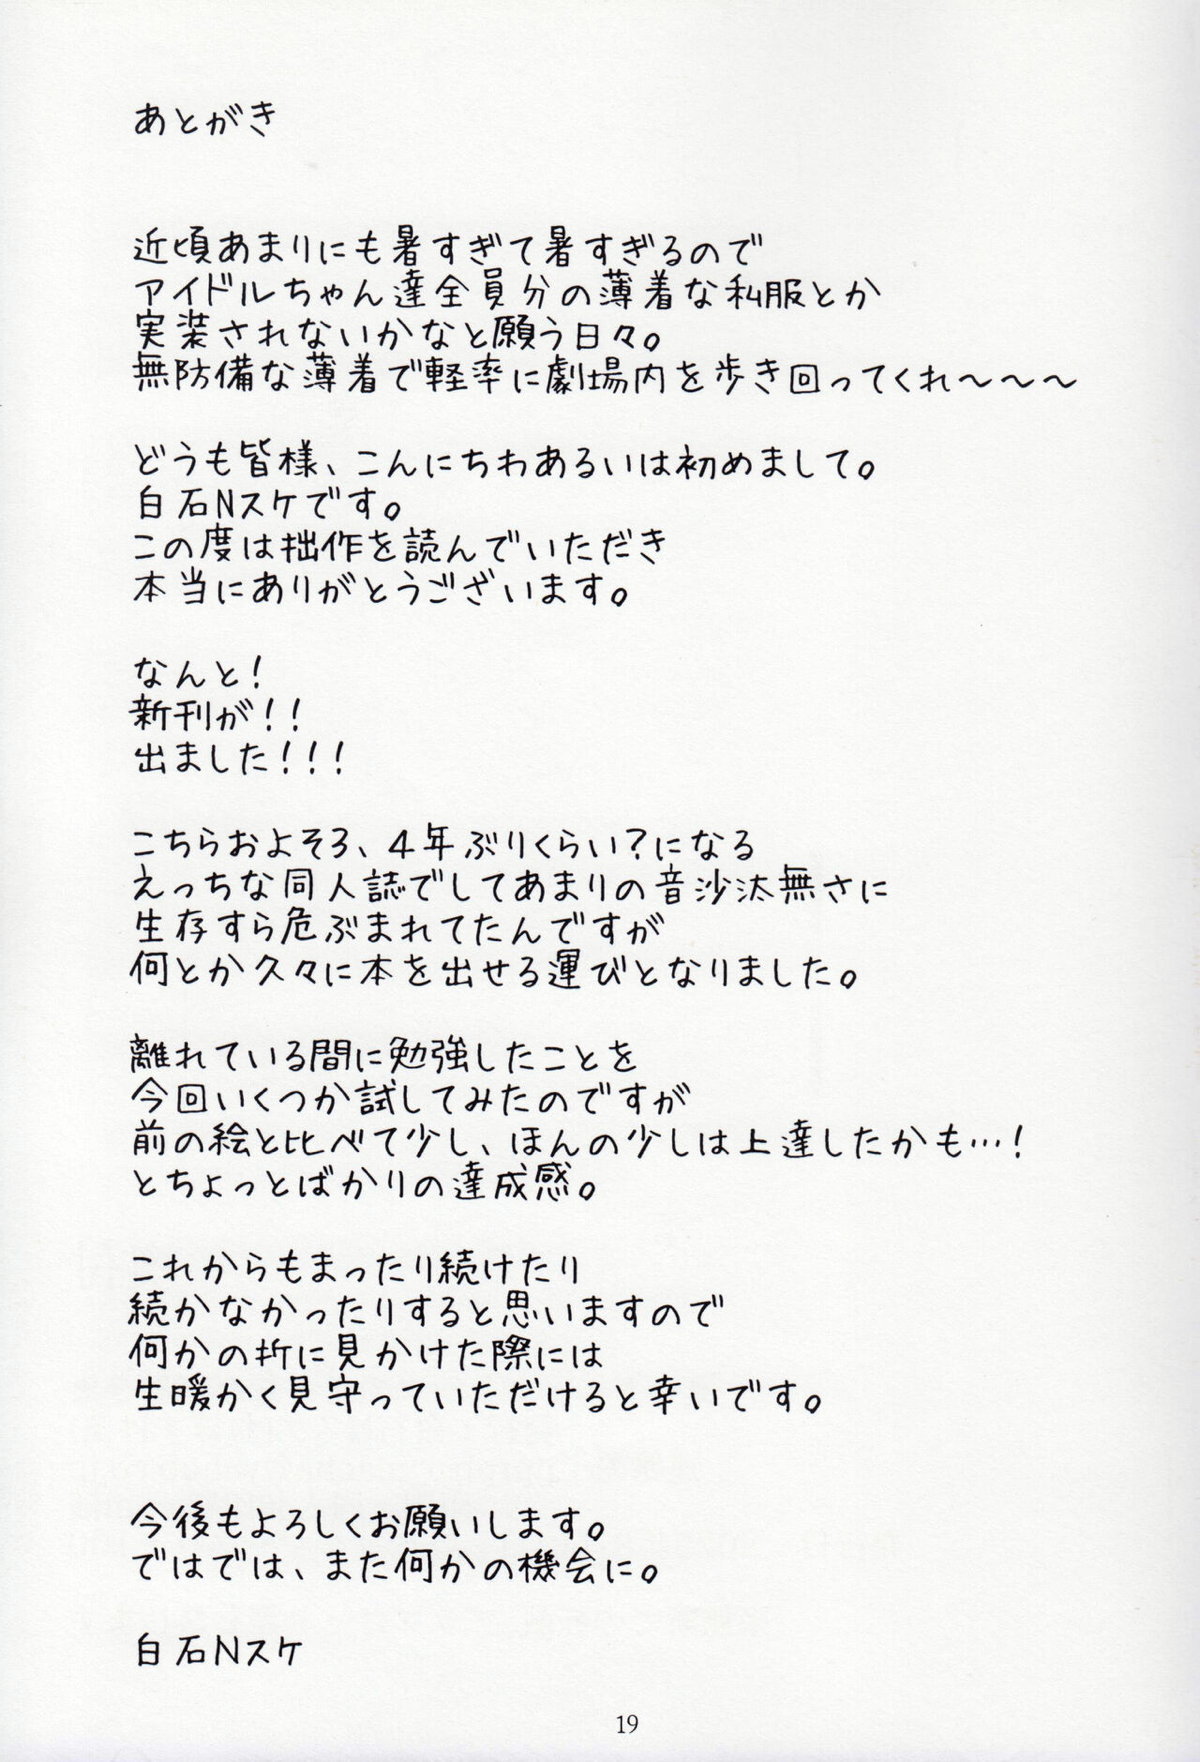 あとがき
近頃あまりにも暑すぎて暑すぎるので
アイドルちゃん達全員分の薄着な私服とか
実装されないかなと願う日々。
無防備な薄着で軽率に劇場内を歩き回ってくれ～～～
どうも皆様、こんにちわあるいは初めまして。
白石Nスケです。
この度は拙作を読んでいただき
本当にありがとうございます。
なんと！
新刊が！！
出ました！！！
こちらおよそ3、4年ぶりくらい？になる
えっちな同人誌でしてあまりの音沙汰無さに
生存すら危ぶまれてたんですが
何とか久々に本を出せる運びとなりました。
離れている間に勉強したことを
今回いくつか試してみたのですが
前の絵と比べて少し、ほんの少しは上達したかも…！
とちょっとばかりの達成感。
これからもまったり続けたり
続かなかったりすると思いますので
何かの折に見かけた際には
生暖かく見守っていただけると幸いです。
今後もよろしくお願いします。
ではでは、また何かの機会に。
白石Nスケ
19